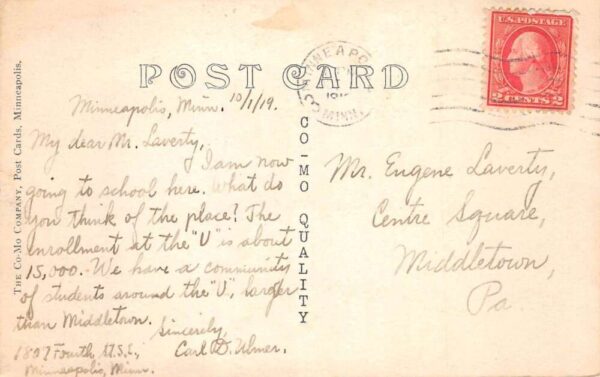 POST CARD
U.S. POSTAGE
2 CENTS 2
MINNEAPO
MINN.
Minneapolis, Minn. 10/1/19.
My dear Mr. Laverty,
I am now
going to school here. What do
you think of the place? The
enrollment at the "U" is about
15,000. We have a community
of students around the "U", larger
than Middletown.
Sincerely,
Carl D. Ulmer.
Fourth St. S.E.,
Minneapolis, Minn.
CO-MO QUALITY
Mr. Eugene Laverty,
Centre Square,
Middletown,
Pa.
THE CO-MO COMPANY, Post Cards, Minneapolis.